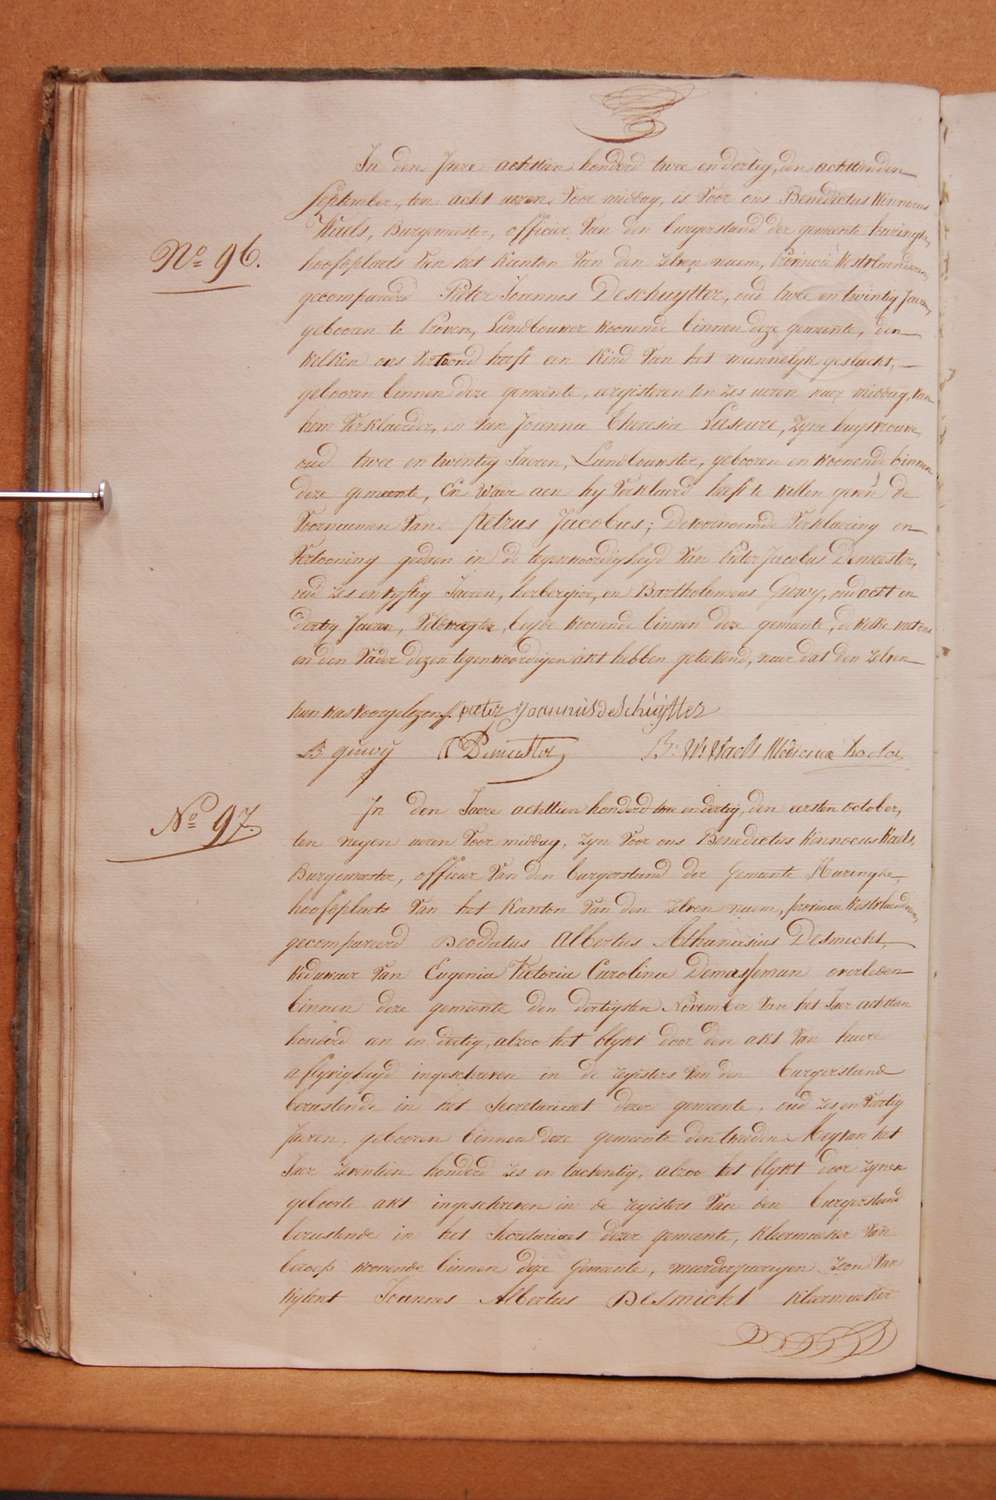 In den Jaere achttien honderd twee en dertig, den achttienden
September, ten acht uren Voor middag, is Voor ons Benedictus Winnocus
Waels, Burgemeester, officier Van den burgerstand der gemeente haringhe,
No 96.
hoofdplaets Van het Kanton Van den zelven naem, Provincie Westvlaenderen,
gecompareerd Pieter Joannes Deschuytter, oud twee en twintig Jaeren,
gebooren te Proven, Landbouwer woonende binnen deze gemeente, den
welken ons Vertoond heeft een Kind Van het mannelyk geslacht,
gebooren binnen deze gemeente, eergisteren ten zes uren naer middag, van
hem Verklaerder, en Van Joanna Theresia Leseure, zyne huysvrouwe,
oud twee en twintig Jaeren, Landbouwster, gebooren en woonende binnen
deze gemeente, En waer aen hy Verklaerd heeft te willen geven de
Voornaemen Van Petrus Jacobus; De voornoemde Verklaering en
Vertooning gedaen in de tegenwoordigheyd Van Pieter Jacobus Demeester,
oud zes en vyftig Jaeren, herbergier, en Bartholomeus Guwy, oud acht en
dertig Jaeren, beyde woonende binnen deze gemeente, de welke met ons
en den Vader dezen tegenwoordigen akt hebben geteekend, naer dat den zelven
hun was voorgelezen. pieter joannis deSchuytter
B guwy P Demeester Bs Ws Waels
No 97.
In den Jaere achttien honderd twee en dertig, den eersten october,
ten negen uren Voor middag, zyn Voor ons Benedictus Winnocus Waels,
Burgemeester, officier Van den burgerstand der Gemeente Haringhe
hoofdplaets Van het Kanton Van den zelven naem, provincie Westvlaenderen,
gecompareerd Deodatus Albertus Athanasius Desmicht,
weduwaer Van Eugenia Victoria Carolina Demasseman overleden
binnen deze gemeente den dertigsten November Van het Jaer achttien
honderd een en dertig, alzoo het blykt door den akt Van haere
aflyvigheyd ingeschreven in de registers Van den burgerstand
berustende in het Secretariaet dezer gemeente, oud zes en veertig
Jaeren, gebooren binnen deze gemeente den tweeden Mey van het
Jaer zeventien honderd zes en tachentig, alzoo het blykt door zynen
geboorte akt ingeschreven in de registers Van den burgerstand
berustende in het Secretariaet dezer gemeente, kleermaeker Van
beroep woonende binnen deze Gemeente, meerderjaerigen Zoon Van
wylent Joannes Albertus Desmicht kleermaeker